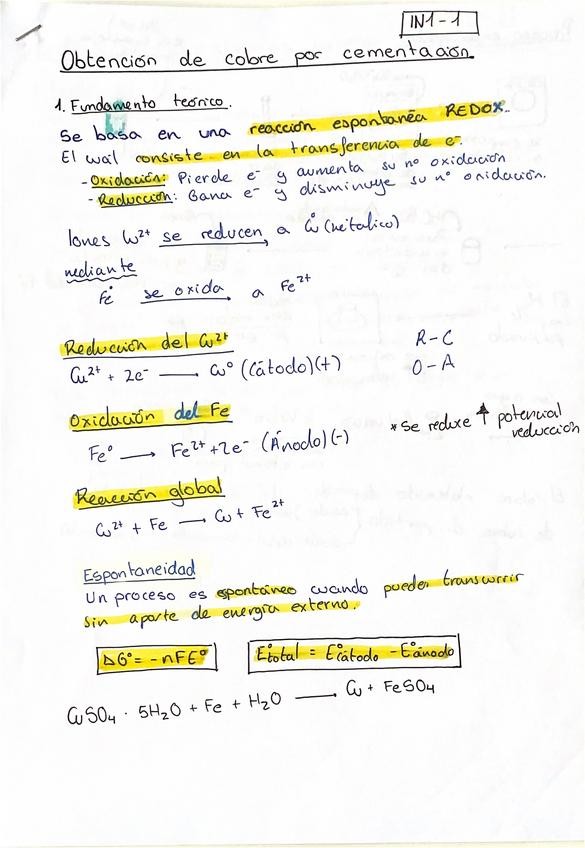 IN1-1
Obtención de cobre por cementación.
1. Fundamento teórico.
Se basa en una reacción espontanéa REDOX.
El wal consiste en la transferencia de e⁻.
- Oxidación: Pierde e⁻ y aumenta su nº oxidación
- Reducción: Gana e⁻ y disminuye su nº oxidación.
Iones Cu²⁺ se reducen a Cu° (metalico)
mediante
Fe° se oxida a Fe²⁺
Reducción del Cu²⁺
Cu²⁺ + 2e⁻ ⟶ Cu° (Cátodo)(+)
R-C
O-A
Oxidación del Fe
Fe° ⟶ Fe²⁺ + 2e⁻ (Ánodo)(-)
*Se reduce ↑ potencial
reducción
Reacción global
Cu²⁺ + Fe ⟶ Cu + Fe²⁺
Espontaneidad
Un proceso es espontáneo cuando puede transcurrir
sin aporte de energía externo.
ΔG° = -nFE°
E°total = E°cátodo - E°ánodo
CuSO₄ · 5H₂O + Fe + H₂O ⟶ Cu + FeSO₄